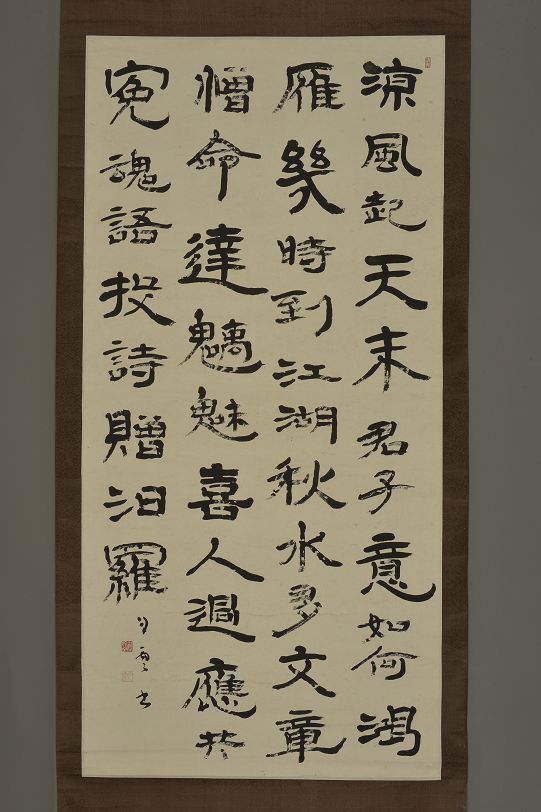 涼風起天末君子意如何鴻
雁幾時到江湖秋水多文章
憎命達魑魅喜人過應共
冤魂語投詩贈汨羅